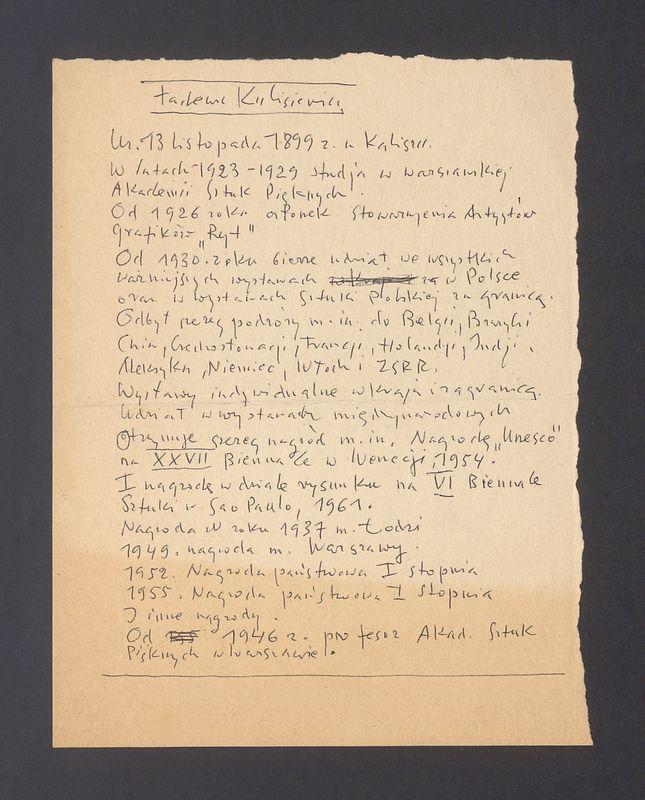 Tadeusz Kulisiewicz
Ur. 13 listopada 1899 r. w Kaliszu.
W latach 1923-1929 studja w warszawskiej
Akademii Sztuk Pięknych.
Od 1926 roku członek Stowarzyszenia Artystów
Grafików „Ryt"
Od 1930. roku bierze udział we wszystkich
ważniejszych wystawach w Polsce
oraz w wystawach Sztuki Polskiej za granicą.
Odbył szereg podróży m.in. do Belgii, Brazylii
Chin, Czechosłowacji, Francji, Holandji, Indji,
Meksyku, Niemiec, Włoch i ZSRR.
Wystawy indywidualne w kraju i zagranicą.
Udział w wystawach międzynarodowych
Otrzymuje szereg nagród m.in. Nagrodę „Unesco"
na XXVII Biennale w Wenecji, 1954.
I nagrodę w dziale rysunku na VI Biennale
Sztuki w Sao Paulo, 1961.
Nagroda w roku 1937 m. Łodzi
1949. nagroda m. Warszawy.
1952. Nagroda państwowa I stopnia
1955. Nagroda państwowa I stopnia
I inne nagrody.
Od 1946 r. profesor Akad. Sztuk
Pięknych w Warszawie.